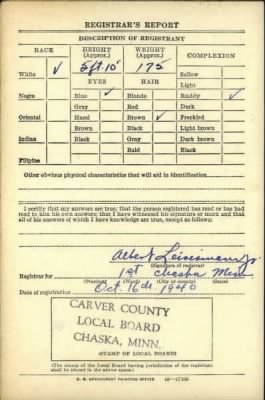 REGISTRAR'S REPORT
DESCRIPTION OF REGISTRANT
RACE HEIGHT (Approx.) WEIGHT (Approx.) COMPLEXION
White ✓ 5 ft. 10" 175 Sallow
EYES HAIR Light
Negro Blue ✓ Blonde Ruddy ✓
Gray Red Dark
Oriental Hazel Brown ✓ Freckled
Brown Black Light brown
Indian Black Gray Dark brown
Bald Black
Filipino
Other obvious physical characteristics that will aid in identification
I certify that my answers are true; that the person registered has read or has had
read to him his own answers; that I have witnessed his signature or mark and that
all of his answers of which I have knowledge are true, except as follows:
Albert
(Signature of registrar)
Registrar for 1st Chaska Minn
(Precinct) (Ward) (City or county) (State)
Date of registration Oct. 16th 1940
CARVER COUNTY
LOCAL BOARD
CHASKA, MINN.
STAMP OF LOCAL BOARD
(The stamp of the Local Board having jurisdiction of the registrant
shall be placed in the above space.)
U. S. GOVERNMENT PRINTING OFFICE